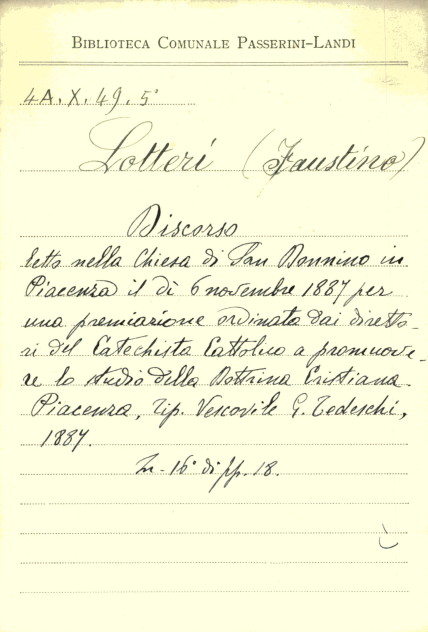 BIBLIOTECA COMUNALE PASSERINI-LANDI
4A.X.49.5°
Lotteri (Faustino)
Discorso
letto nella Chiesa di San Donnino in
Piacenza il dì 6 novembre 1887 per
una premiazione ordinata dai diretto-
ri del Catechista Cattolico a promuove-
re lo studio della Dottrina Cristiana.
Piacenza, Tip. Vescovile G. Tedeschi,
1887.
In-16° di pp. 18.